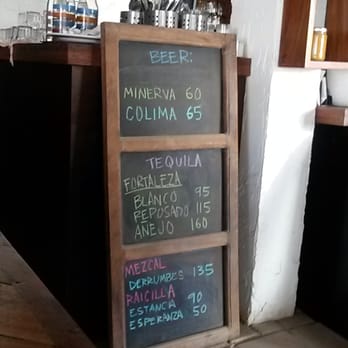 BEER:
MINERVA 60
COLIMA 65
TEQUILA
FORTALEZA
BLANCO 95
REPOSADO 115
AÑEJO 160
MEZCAL
DERRUMBES 135
RAICILLA
ESTANCIA 90
ESPERANZA 50